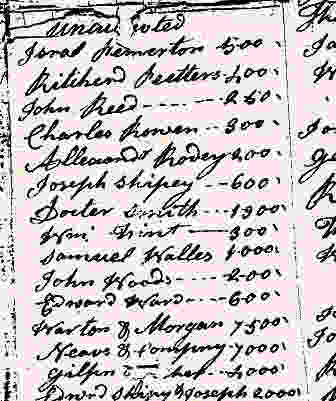 Isral Pemerton 500
Ritcherd Peetters 400
John Reed ---- 250
Charles Rowen -- 300
Allexand Rodey 200
Joseph Shipey -- 600
Docter Smith --- 1900
Wm 300
Samuel Walles 1000
John Woods --- 200
Edward Ward --- 600
Warton & Morgan 7500
Neave & Compny 7000
Gilpin & 4000
Edwrd Shipy & Joseph 2000